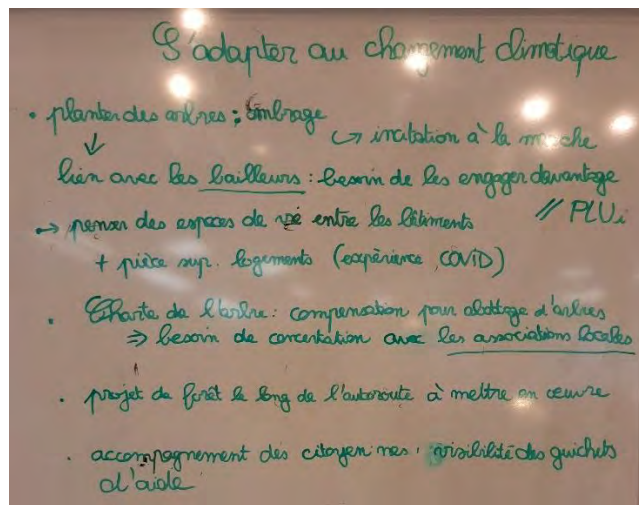 S'adapter au changement climatique
• planter des arbres : ombrage
↳ incitation à la marche
↓
lien avec les bailleurs : besoin de les engager davantage
// PLUi
→ penser des espaces de vie entre les bâtiments
+ pièce sup. logements (expérience COVID)
• Charte de l'arbre : compensation pour abattage d'arbres
⇒ besoin de concertation avec les associations locales
• projet de forêt le long de l'autoroute à mettre en œuvre
• accompagnement des citoyen·nes : visibilité des guichets
d'aide